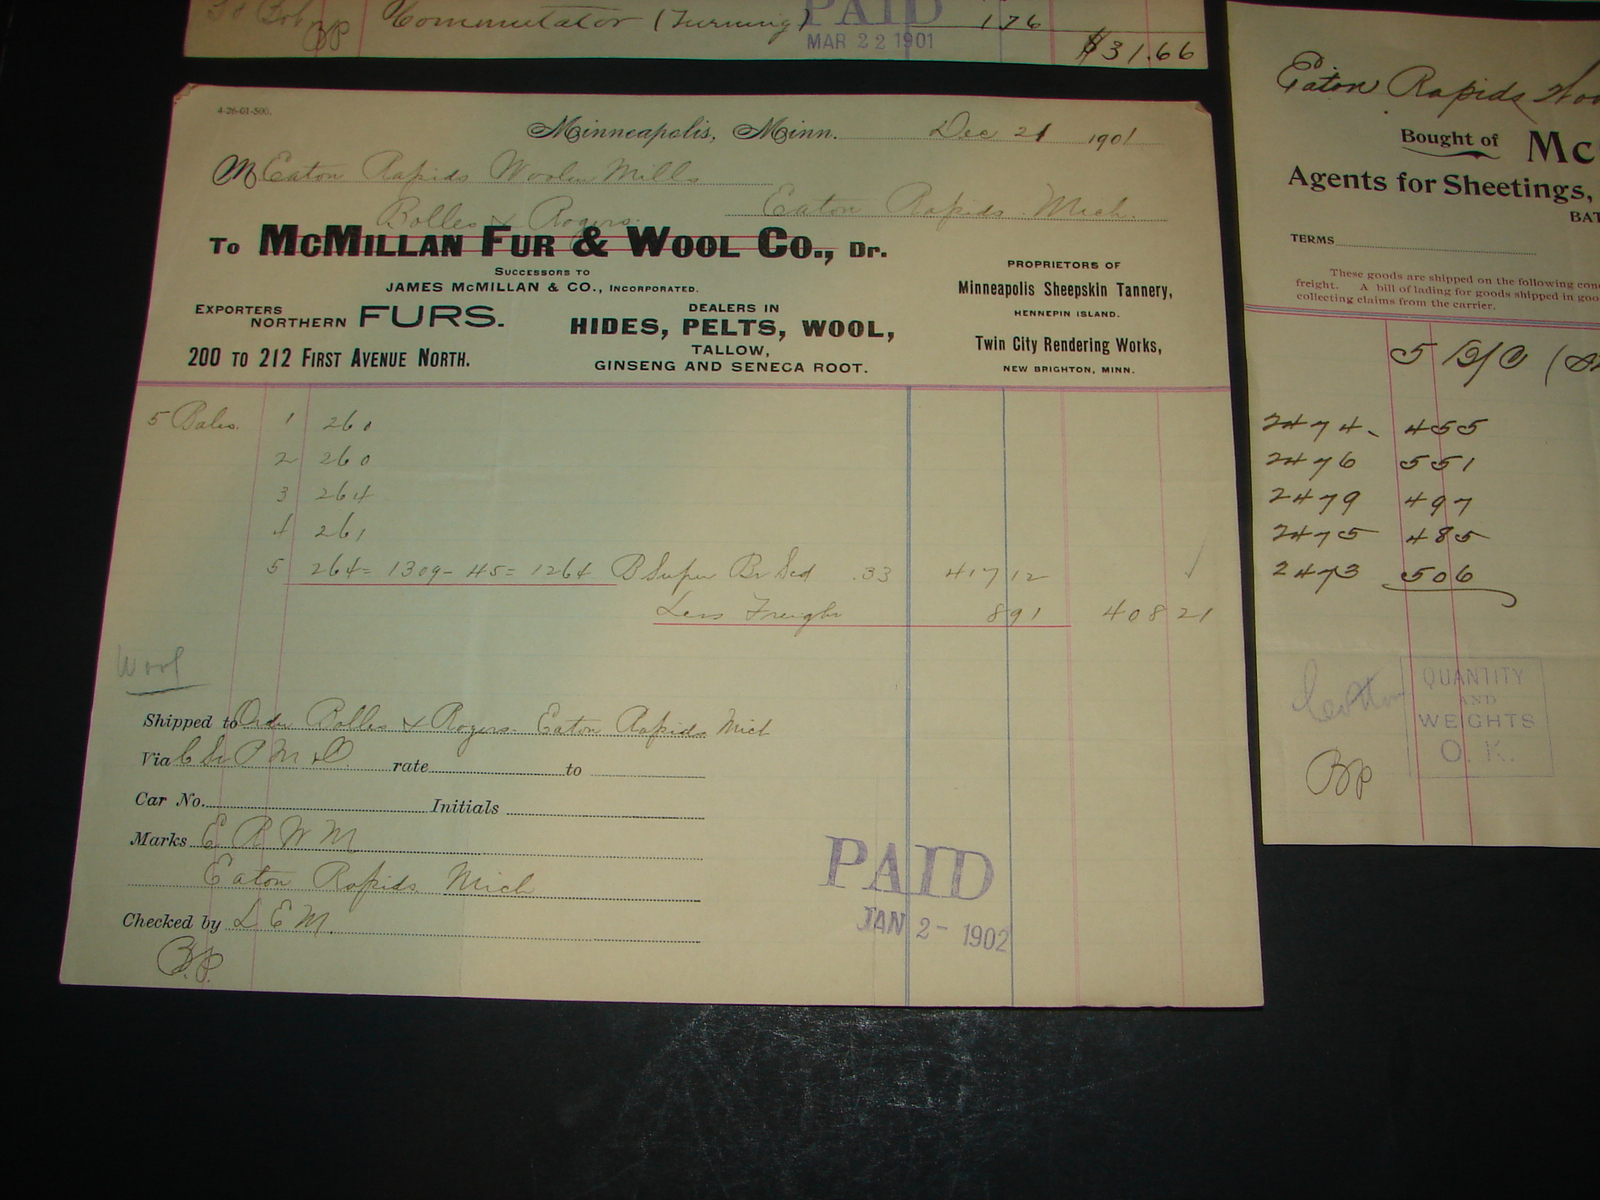 Commutator (Turning) 176
BP
PAID
MAR 22 1901
$31.66
4-26-01-500.
Minneapolis, Minn. Dec 21 1901
M Eaton Rapids Woolen Mills
Eaton Rapids Mich.
Bolles & Rogers
To McMillan Fur & Wool Co., Dr.
Successors to
James McMillan & Co., Incorporated.
Exporters Northern FURS.
200 to 212 First Avenue North.
Dealers in
HIDES, PELTS, WOOL,
TALLOW,
GINSENG AND SENECA ROOT.
Proprietors of
Minneapolis Sheepskin Tannery,
Hennepin Island.
Twin City Rendering Works,
New Brighton, Minn.
5 Bales. 1 260
2 260
3 264
4 261
5 264 = 1309 - 45 = 1264 B Super Br Scd .33 417 12
Less Freight 8 91 408 21
Wool
Shipped to Order Bolles & Rogers. Eaton Rapids Mich
Via C St P M & O. rate to
Car No. Initials
Marks E R W M
Eaton Rapids Mich
Checked by L E M.
B.P.
PAID
JAN 2- 1902
Eaton Rapids Woo
Bought of Mc
Agents for Sheetings,
BAT
TERMS
These goods are shipped on the following con
freight. A bill of lading for goods shipped in goo
collecting claims from the carrier.
5 B/C
2474 - 455
2476 551
2479 497
2475 485
2473 506
QUANTITY
AND
WEIGHTS
O. K.
BP